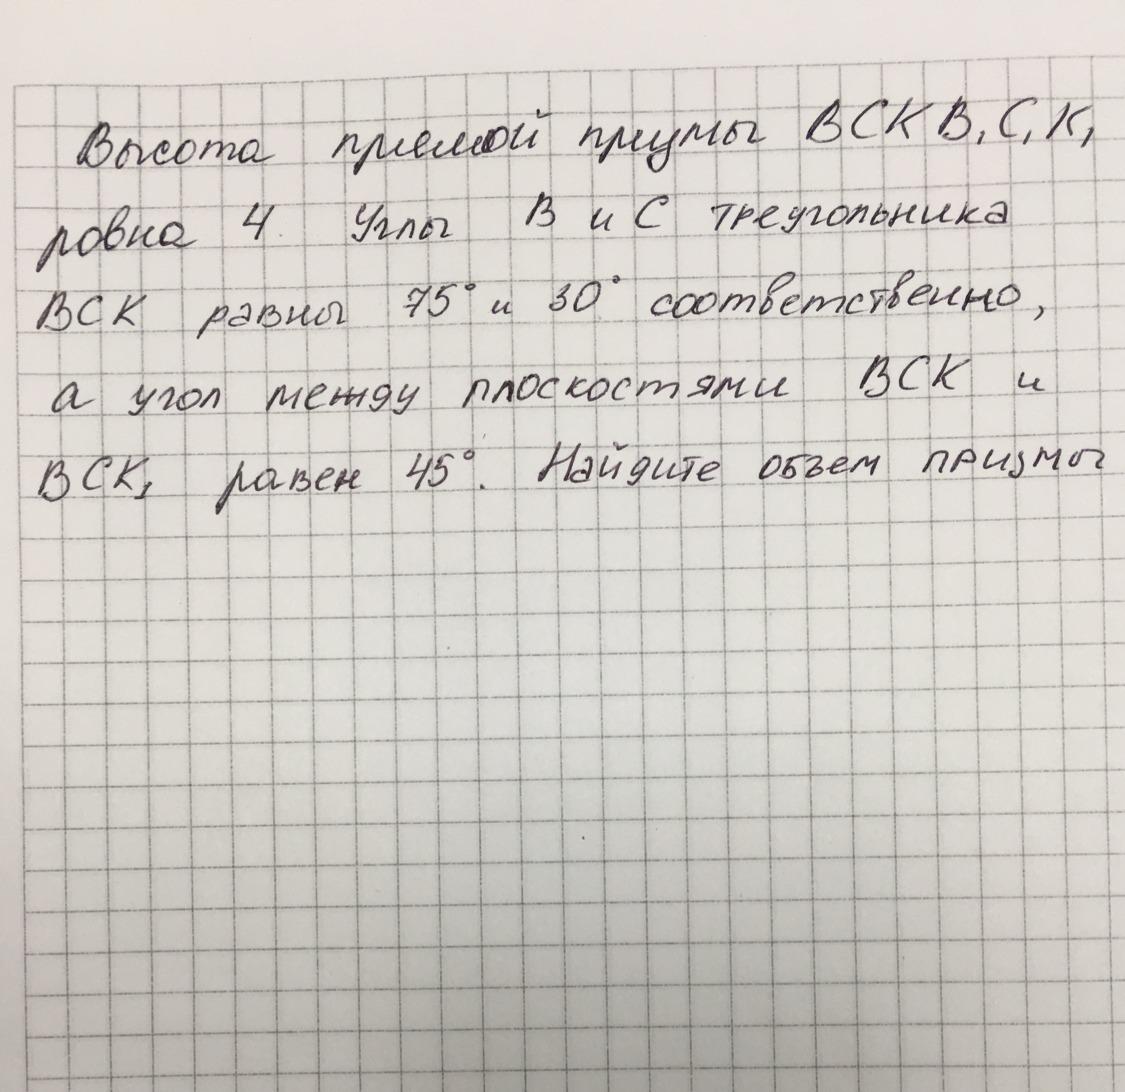 Высота прямой призмы ВСКВ₁С₁К₁
ровна 4. Углы В и С треугольника
ВСК равны 75° и 30° соответственно,
а угол между плоскостями ВСК и
ВСК₁ равен 45°. Найдите объем призмы